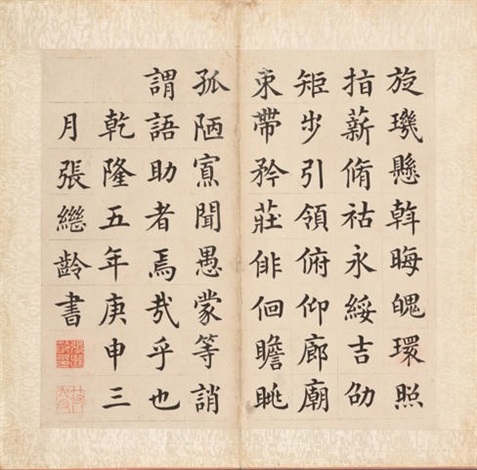 旋璣懸斡晦魄環照
指薪脩祜永綏吉劭
矩步引領俯仰廊廟
束帶矜莊俳佪瞻眺
孤陋寡聞愚蒙等誚
謂語助者焉哉乎也
乾隆五年庚申三
月張繼齡書